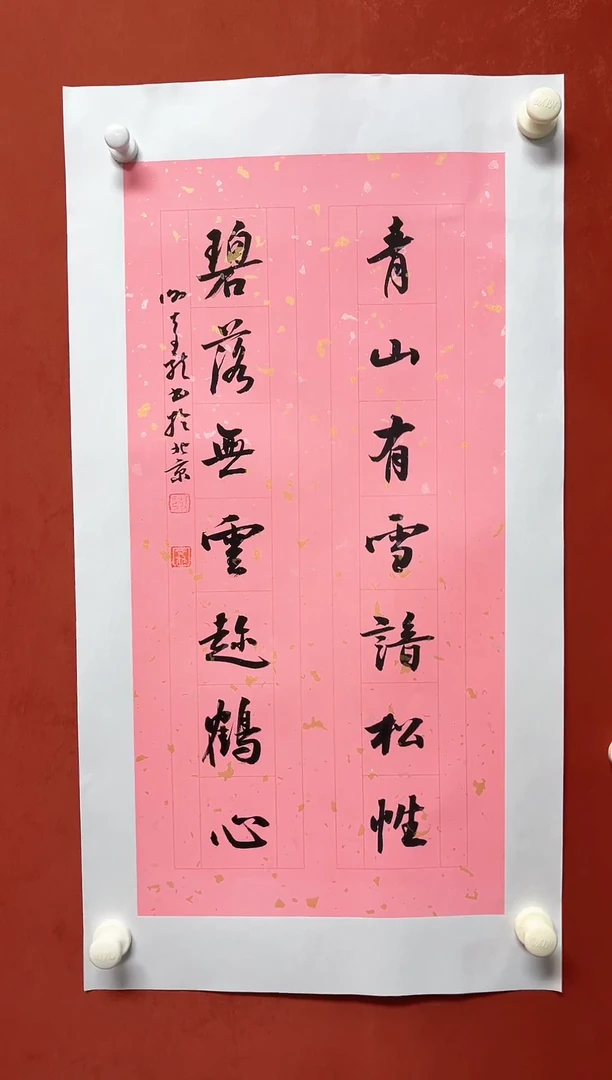 青山有雪諳松性
碧落無雲趂鶴心
书於北京